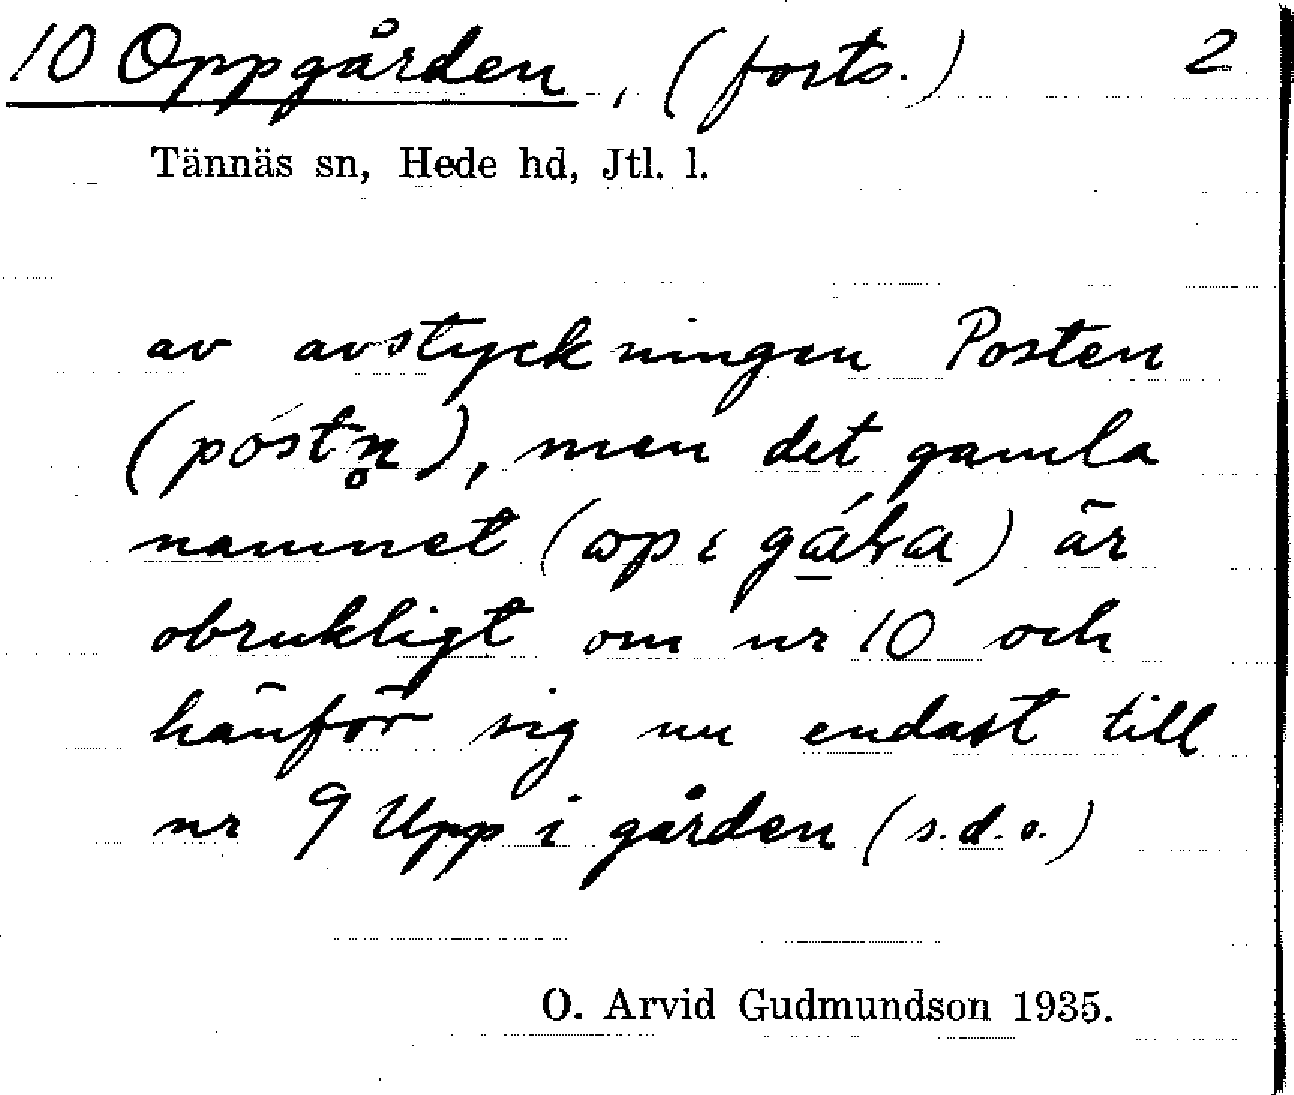 10 Oppgården, (forts.) 2
Tännäs sn, Hede hd, Jtl. l.
av avstyckningen Posten
(póstn̥), men det gamla
namnet (op i) är
obrukligt om nr 10 och
hänför sig nu endast till
nr 9 Upp i gården (s.d.o.)
O. Arvid Gudmundson 1935.